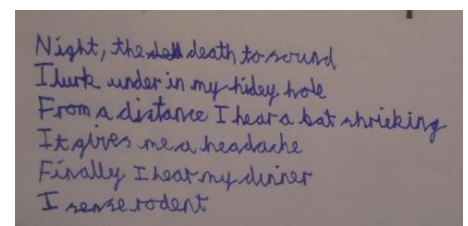 Night, the death to sound
I lurk under in my hidey hole
From a distance I hear a bat shrieking
It gives me a headache
Finally I hear my dinner
I sense rodent